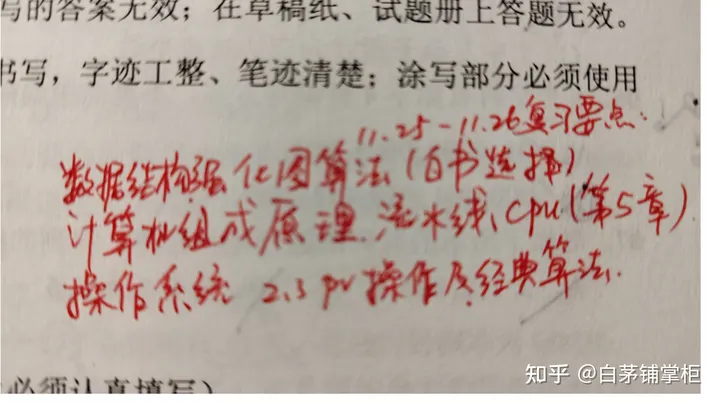 写的答案无效；在草稿纸、试题册上答题无效。
书写，字迹工整、笔迹清楚；涂写部分必须使用
11.25-11.26复习要点:
数据结构强化图算法(白书选择)
计算机组成原理 流水线、cpu(第5章)
操作系统 2.3 pv操作及经典算法.
必须认真填写)
知乎 @白茅铺掌柜